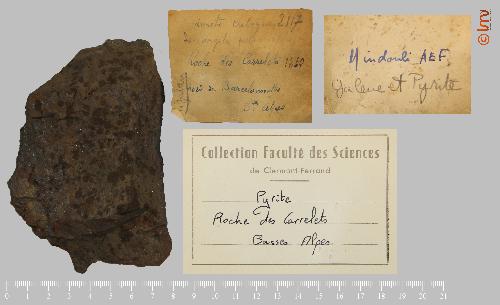 2117
Roche des Carrelets
près de Barcelonnette
Mindouli A.E.F.
Galene et Pyrite
Collection Faculté des Sciences
de Clermont-Ferrand
Pyrite
Roche des Carrelets
Basses Alpes
© lmv
0 1 2 3 4 5 6 7 8 9 10 11 12 13 14 15 16 17 18 19 20 21